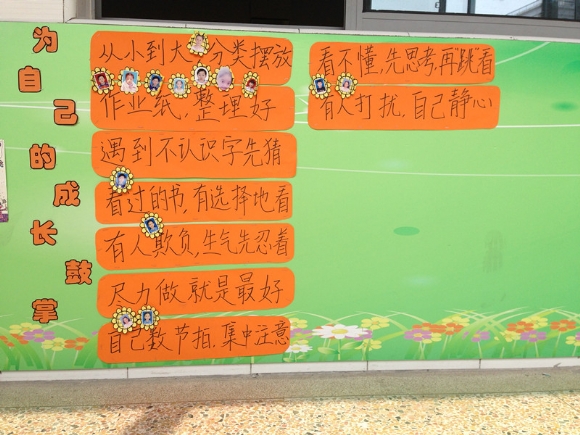 为自己的成长鼓掌
从小到大,分类摆放
作业纸,整理好
遇到不认识字先猜
看过的书,有选择地看
有人欺负,生气先忍着
尽力做 就是最好
自己数节拍,集中注意
看不懂,先思考,再"跳"看
有人打扰,自己静心